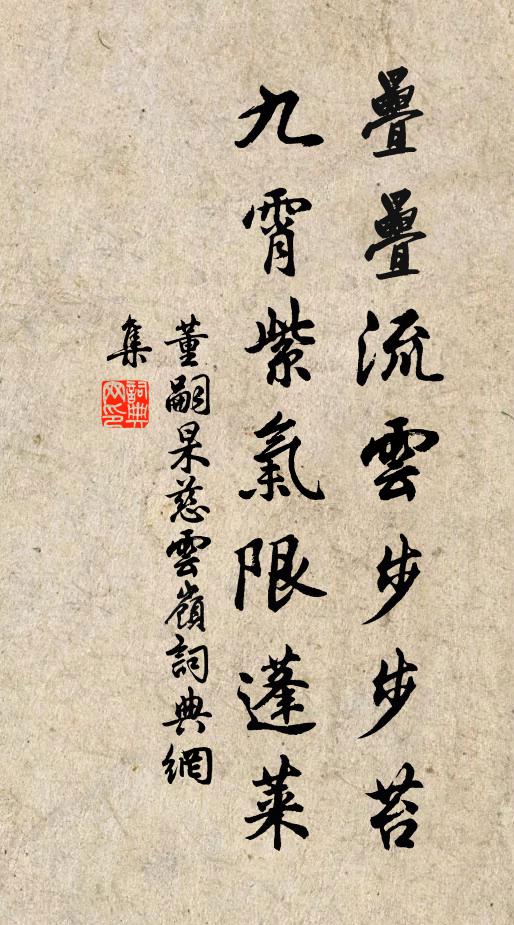 疊疊流雲步步苔
九霄紫氣限蓬萊
董嗣杲慈雲嶺詞典網
集
詞典網印